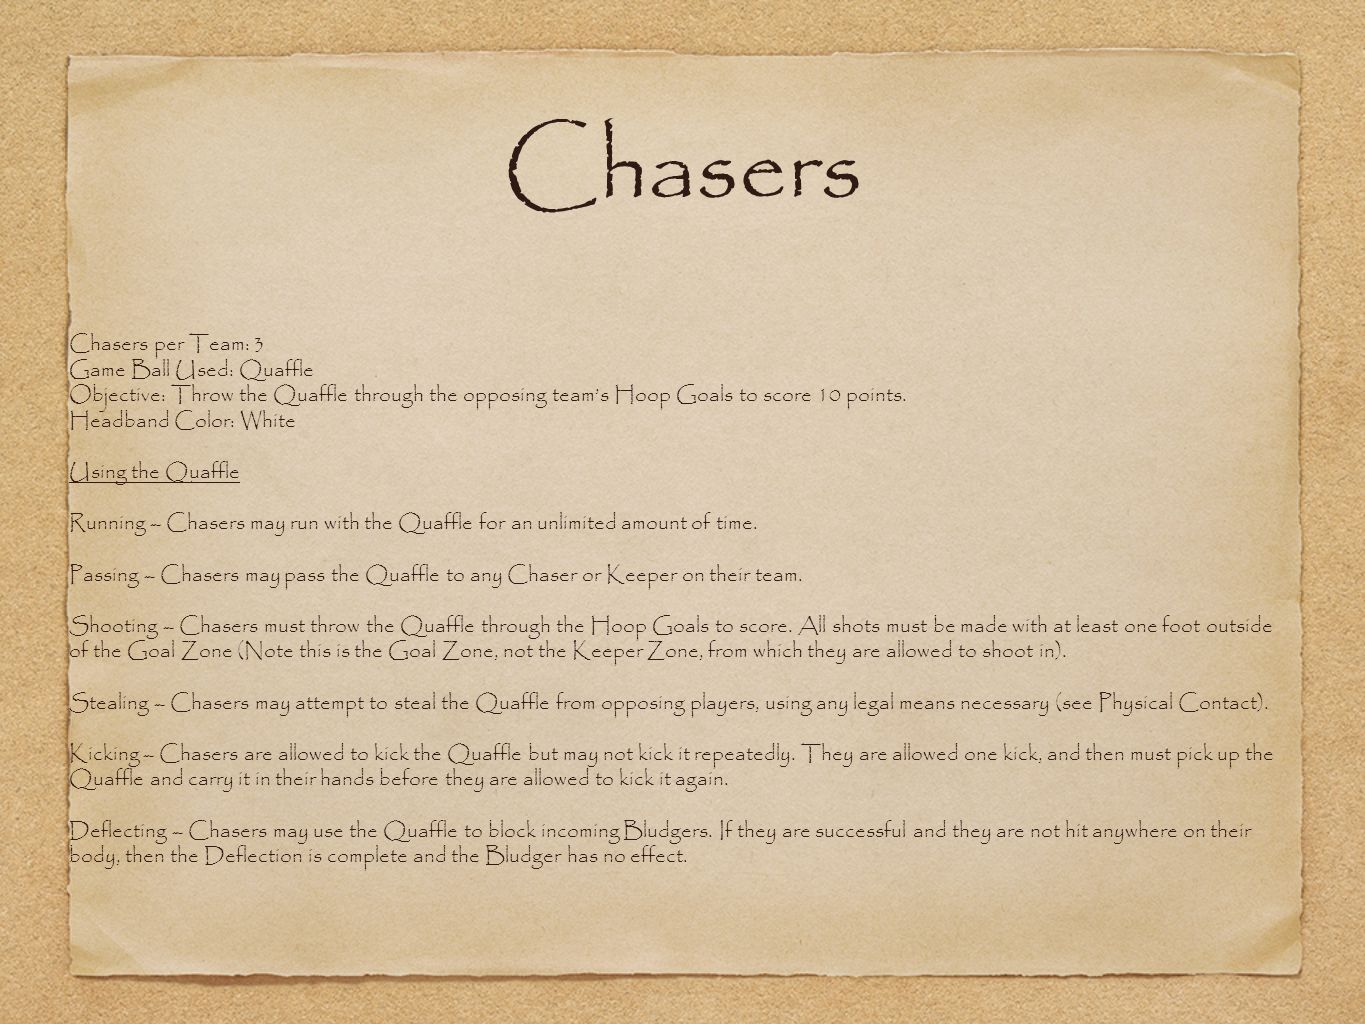 Chasers
Chasers per Team: 3
Game Ball Used: Quaffle
Objective: Throw the Quaffle through the opposing team's Hoop Goals to score 10 points.
Headband Color: White
Using the Quaffle
Running – Chasers may run with the Quaffle for an unlimited amount of time.
Passing – Chasers may pass the Quaffle to any Chaser or Keeper on their team.
Shooting – Chasers must throw the Quaffle through the Hoop Goals to score. All shots must be made with at least one foot outside
of the Goal Zone (Note this is the Goal Zone, not the Keeper Zone, from which they are allowed to shoot in).
Stealing – Chasers may attempt to steal the Quaffle from opposing players, using any legal means necessary (see Physical Contact).
Kicking – Chasers are allowed to kick the Quaffle but may not kick it repeatedly. They are allowed one kick, and then must pick up the
Quaffle and carry it in their hands before they are allowed to kick it again.
Deflecting – Chasers may use the Quaffle to block incoming Bludgers. If they are successful and they are not hit anywhere on their
body, then the Deflection is complete and the Bludger has no effect.